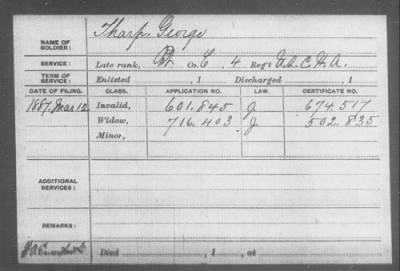 NAME OF SOLDIER: Tharp, George
SERVICE: Late rank, Pvt Co. C, 4 Reg't U.S.C.H.A.
TERM OF SERVICE: Enlisted , 1 Discharged , 1
DATE OF FILING. CLASS. APPLICATION NO. LAW. CERTIFICATE NO.
1887. Mar 12 Invalid, 601.845 J. 674.517
Widow, 716.403 J. 502.835
Minor,
ADDITIONAL SERVICES:
REMARKS:
Died , 1 , at